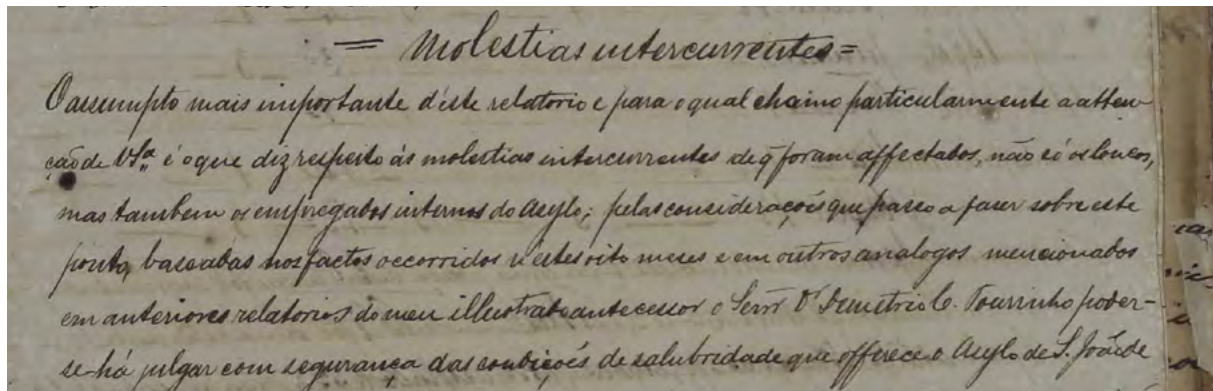 = Molestias intercurrentes =
O assumpto mais importante d'éste relatorio e para o qual chamo particularmente a atten-
ção de V.Sª é o que diz respeito ás molestias intercurrentes de q̃ foram affectados, não só os loucos,
mas tambem os empregados internos do Asylo; pelas considerações que passo a faser sobre este
ponto, baseadas nos factos occorridos n'éstes oito meses e em outros analogos mencionados
em anteriores relatorios do meu illustrado antecessor o Senr Dr Demetrio C. Tourinho poder-
se-há julgar com segurança das condições de salubridade que offerece o Asylo de S. João de